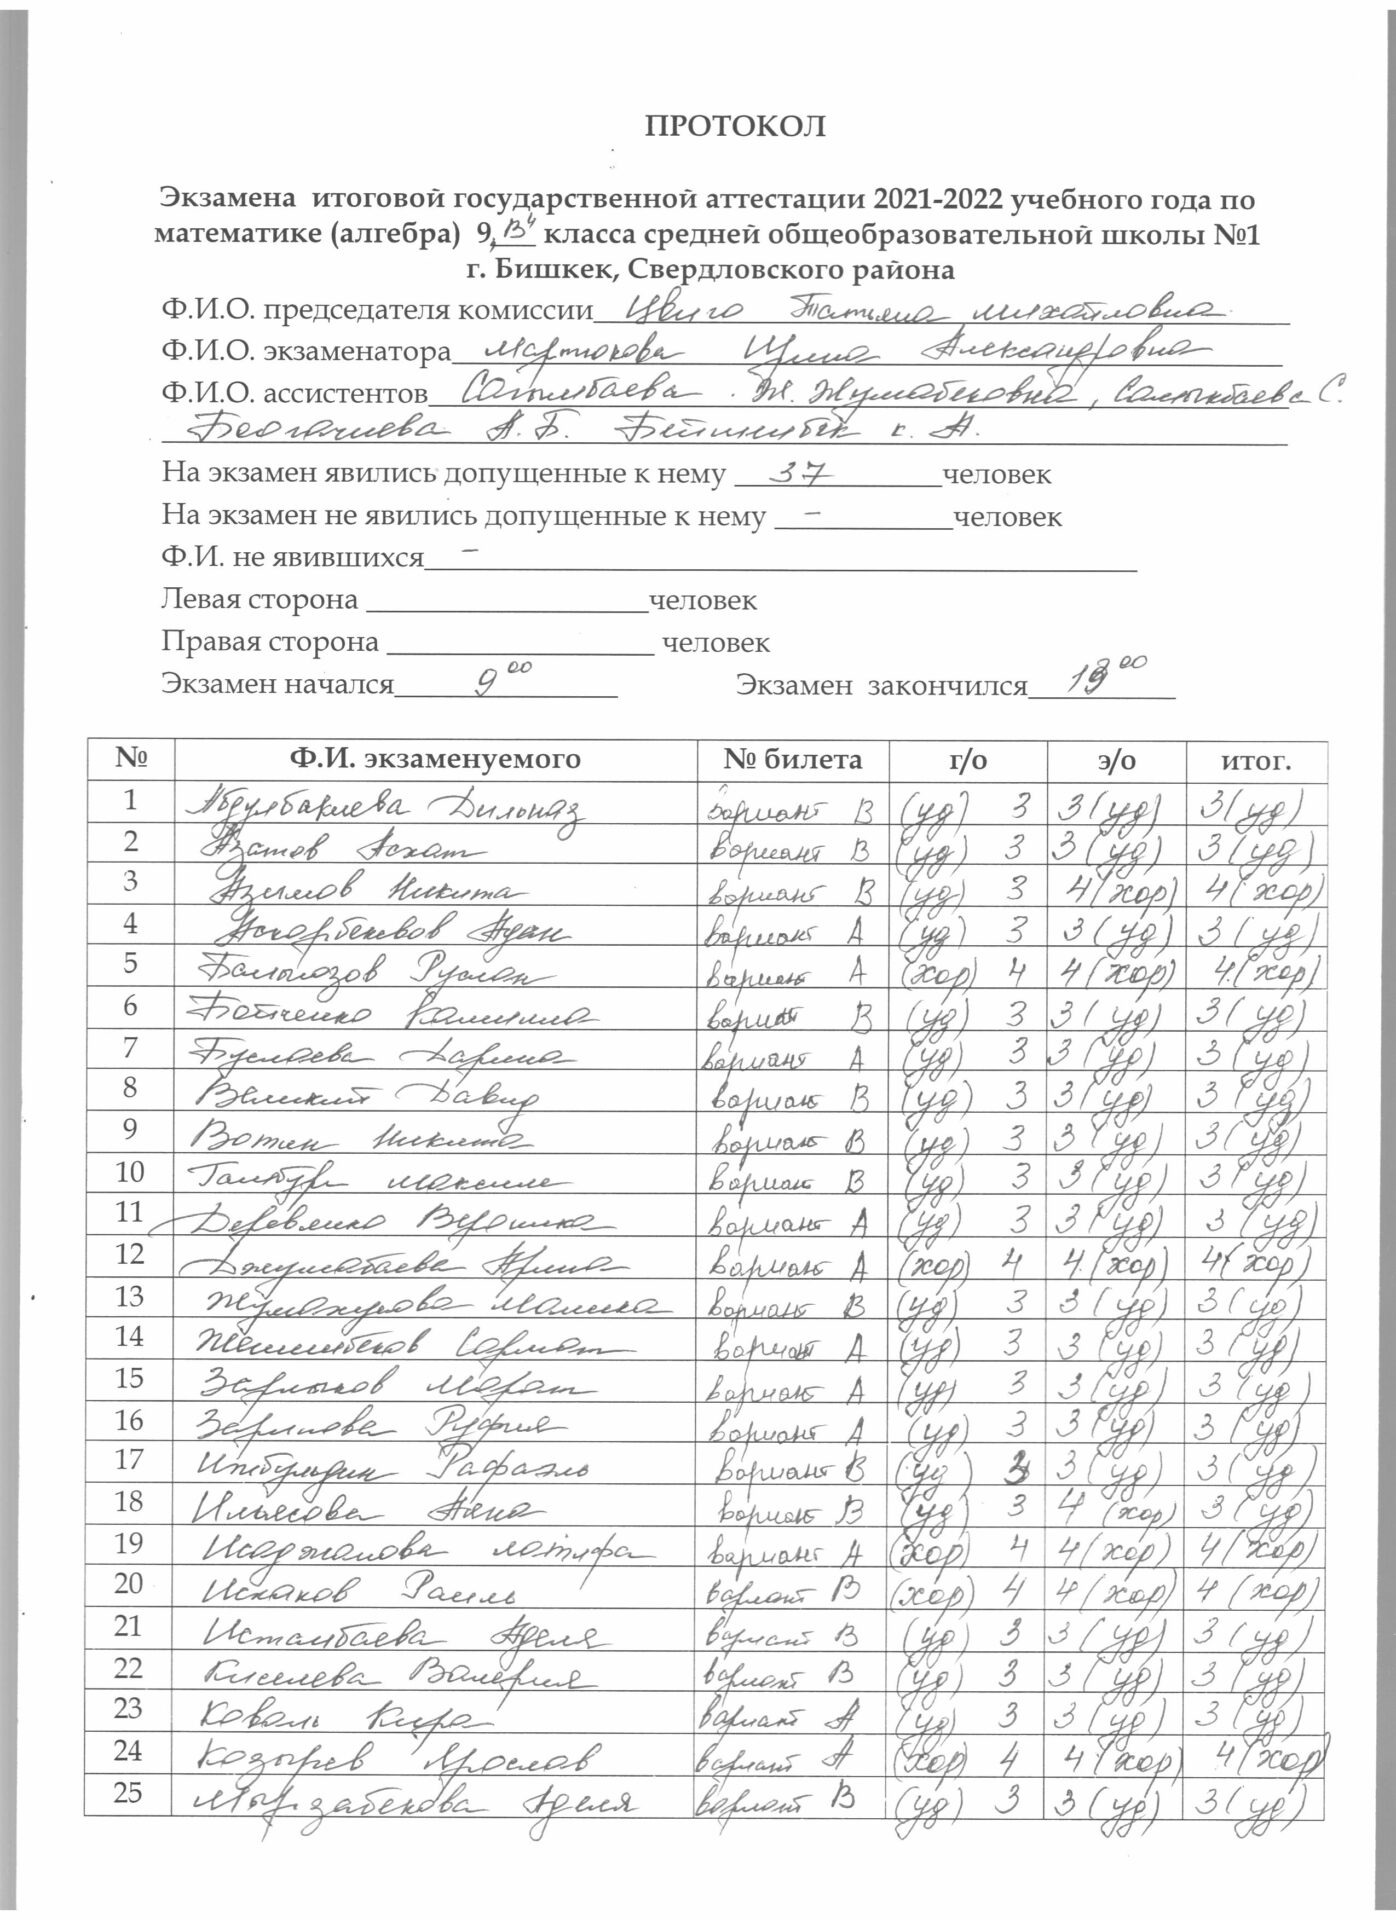 ПРОТОКОЛ
Экзамена итоговой государственной аттестации 2021-2022 учебного года по
математике (алгебра) 9 "В" класса средней общеобразовательной школы №1
г. Бишкек, Свердловского района
Ф.И.О. председателя комиссии Цвиго Татьяна Михайловна
Ф.И.О. экзаменатора Мартюкова Ирина Александровна
Ф.И.О. ассистентов Сагымбаева Ж. Жумабековна, Салыкбаева С.
А.Б. к. А.
На экзамен явились допущенные к нему 37 человек
На экзамен не явились допущенные к нему - человек
Ф.И. не явившихся -
Левая сторона человек
Правая сторона человек
Экзамен начался 9 00 Экзамен закончился 13 00
№ Ф.И. экзаменуемого № билета г/о э/о итог.
1 Абдулбакиева Дильназ вариант В (уд) 3 3 (уд) 3 (уд)
2 Азатов Асхат вариант В (уд) 3 3 (уд) 3 (уд)
3 Азимов Никита вариант В (уд) 3 4 (хор) 4 (хор)
4 Аскарбеков Адан вариант А (уд) 3 3 (уд) 3 (уд)
5 Руслан вариант А (хор) 4 4 (хор) 4 (хор)
6 Бойченко Камилла вариант В (уд) 3 3 (уд) 3 (уд)
7 Буслаева Дарина вариант А (уд) 3 3 (уд) 3 (уд)
8 Великий Давид вариант В (уд) 3 3 (уд) 3 (уд)
9 Вотин Никита вариант В (уд) 3 3 (уд) 3 (уд)
10 Максим вариант В (уд) 3 3 (уд) 3 (уд)
11 Деревянко Вероника вариант А (уд) 3 3 (уд) 3 (уд)
12 Джумабаева Арина вариант А (хор) 4 4 (хор) 4 (хор)
13 Малика вариант В (уд) 3 3 (уд) 3 (уд)
14 Сармат вариант А (уд) 3 3 (уд) 3 (уд)
15 Зарлыков Марат вариант А (уд) 3 3 (уд) 3 (уд)
16 Зарипова Руфия вариант А (уд) 3 3 (уд) 3 (уд)
17 Ижбульдин Рафаэль вариант В (уд) 3 3 (уд) 3 (уд)
18 Ильясова вариант В (уд) 3 4 (хор) 3 (уд)
19 Исаджанова Латифа вариант А (хор) 4 4 (хор) 4 (хор)
20 Искаков Раиль вариант В (хор) 4 4 (хор) 4 (хор)
21 Истамбаева Аделя вариант В (уд) 3 3 (уд) 3 (уд)
22 Киселева Валерия вариант В (уд) 3 3 (уд) 3 (уд)
23 Коваль Кира вариант А (уд) 3 3 (уд) 3 (уд)
24 Козырев Ярослав вариант А (хор) 4 4 (хор) 4 (хор)
25 Мырзабекова Аделя вариант В (уд) 3 3 (уд) 3 (уд)